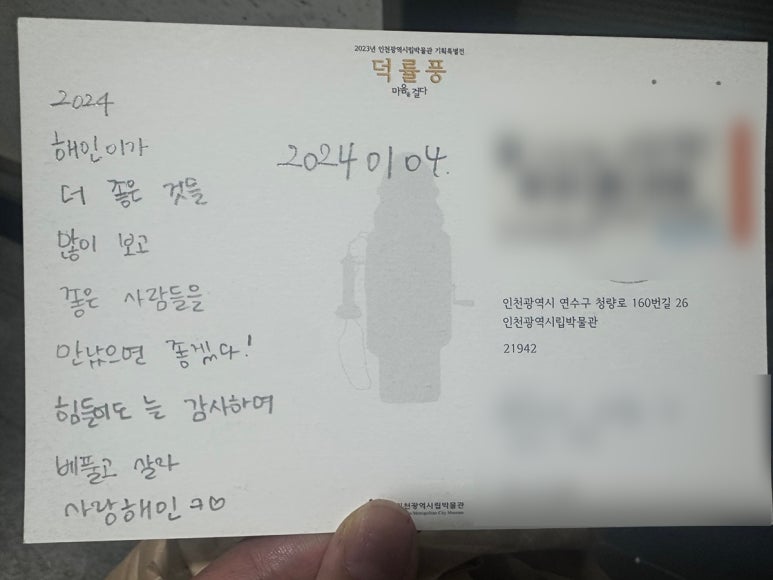 2023년 인천광역시립박물관 기획특별전
덕률풍
마음을 걸다
2024
해인이가
더 좋은 것들
많이 보고
좋은 사람들을
만났으면 좋겠다!
힘들어도 늘 감사하며
베풀고 살자
사랑해인ㅋ♡
2024 01 04.
인천광역시 연수구 청량로 160번길 26
인천광역시립박물관
21942
인천광역시립박물관
Metropolitan City Museum